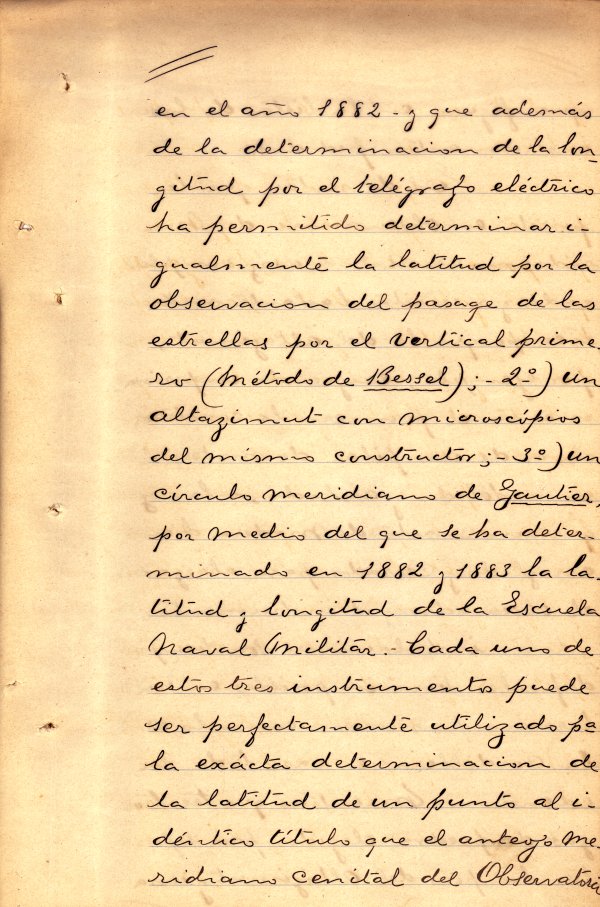 en el año 1882 - y que además
de la determinacion de la lon-
gitud por el telégrafo eléctrico
ha permitido determinar i-
gualmente la latitud por la
observacion del pasage de las
estrellas por el vertical prime-
ro (Método de Bessel); - 2º) un
altazimut con microscópios
del mismo constructor; - 3º) un
círculo meridiano de Gautier,
por medio del que se ha deter-
minado en 1882 y 1883 la la-
titud y longitud de la Escuela
Naval Militár. - Cada uno de
estos tres instrumentos puede
ser perfectamente utilizado pª
la exácta determinacion de
la latitud de un punto al i-
déntico título que el anteojo me-
ridiano cenital del Observatorio